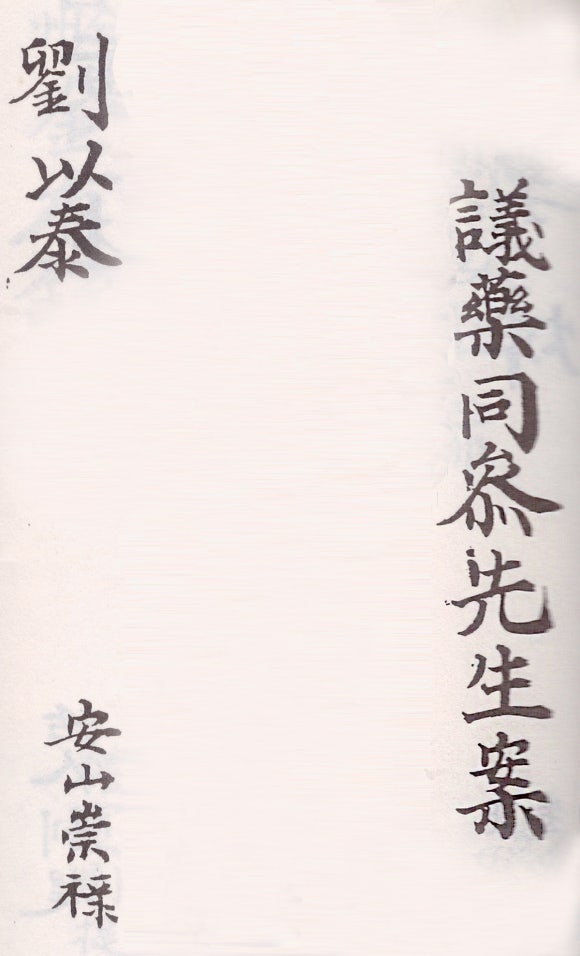 議藥同參先生案
劉以泰
安山崇祿